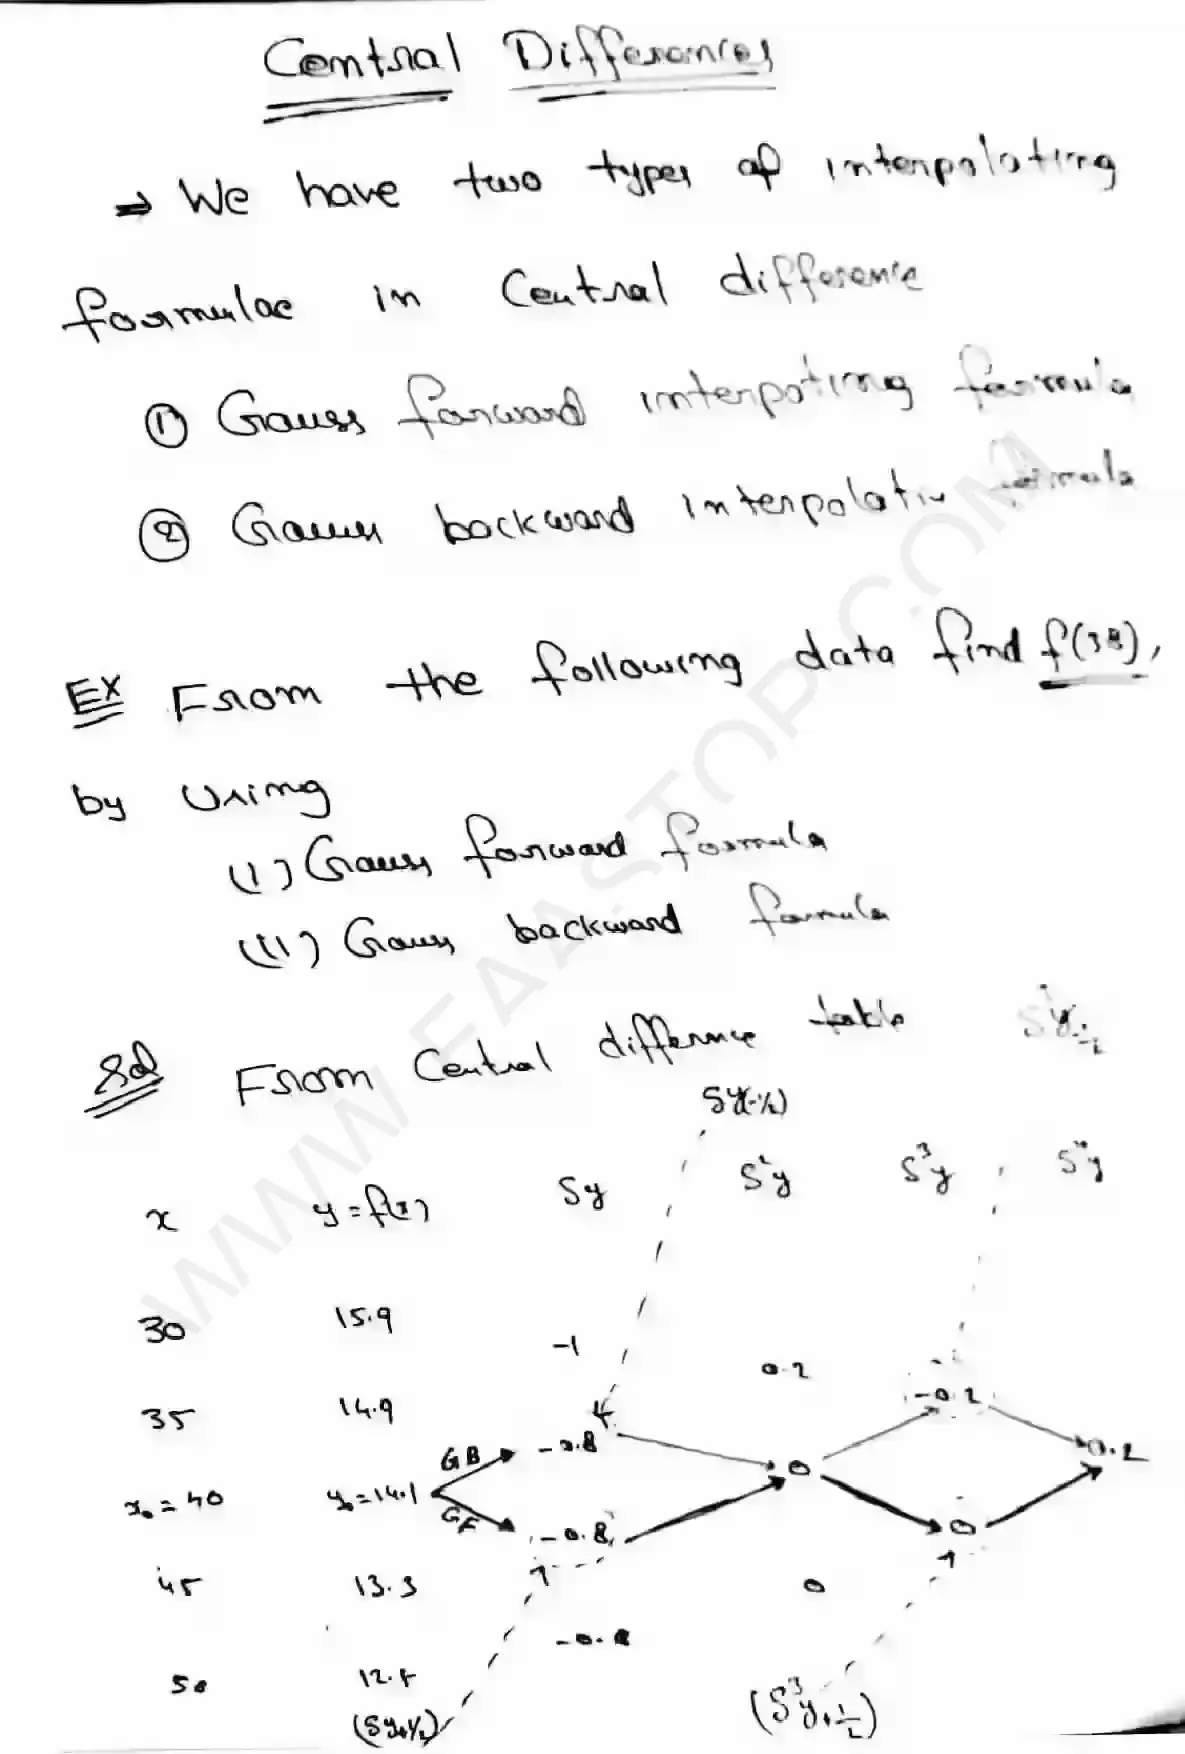 Central Differences
⇒ We have two types of interpolating
formulae in Central difference
① Gauss forward interpoting formula
② Gauss backward interpolatin formula
Ex From the following data find f(38),
by Using
(i) Gauss forward formula
(ii) Gauss backward formula
Sol From Central difference table δ³y-½
δy(-½)
x y = f(x) δy δ²y δ³y δ⁴y
30 15.9
-1
0.2
35 14.9 -0.2
GB -0.8
x₀ = 40 y₀ = 14.1 0 0.2
GF -0.8 0
45 13.3 0
-0.8
50 12.5
(δy+½) (δ³y+½)
WWW.FAASTOP.COM